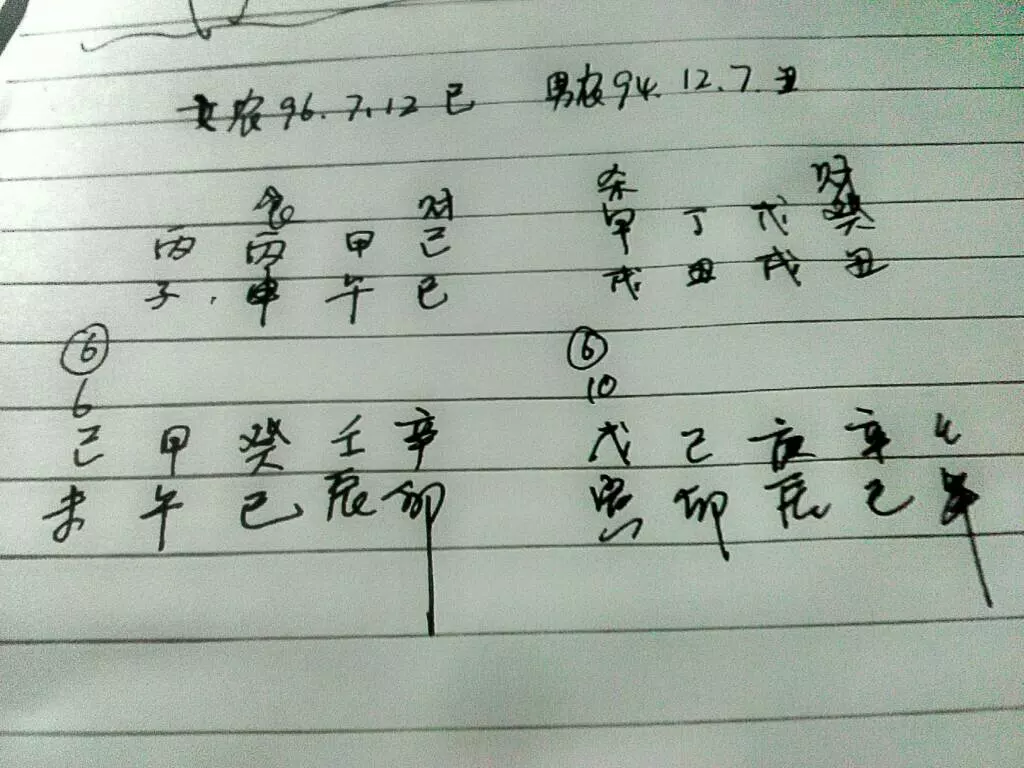 女农96.7.12巳 男农94.12.7.丑
食 财 杀 财
丙 丙 甲 己 甲 丁 戊 癸
子 申 午 巳 戌 丑 戌 丑
⑥ ⑥
6 10
己 甲 癸 壬 辛 戊 己 辛
未 午 巳 辰 卯 寅 卯 辰 巳